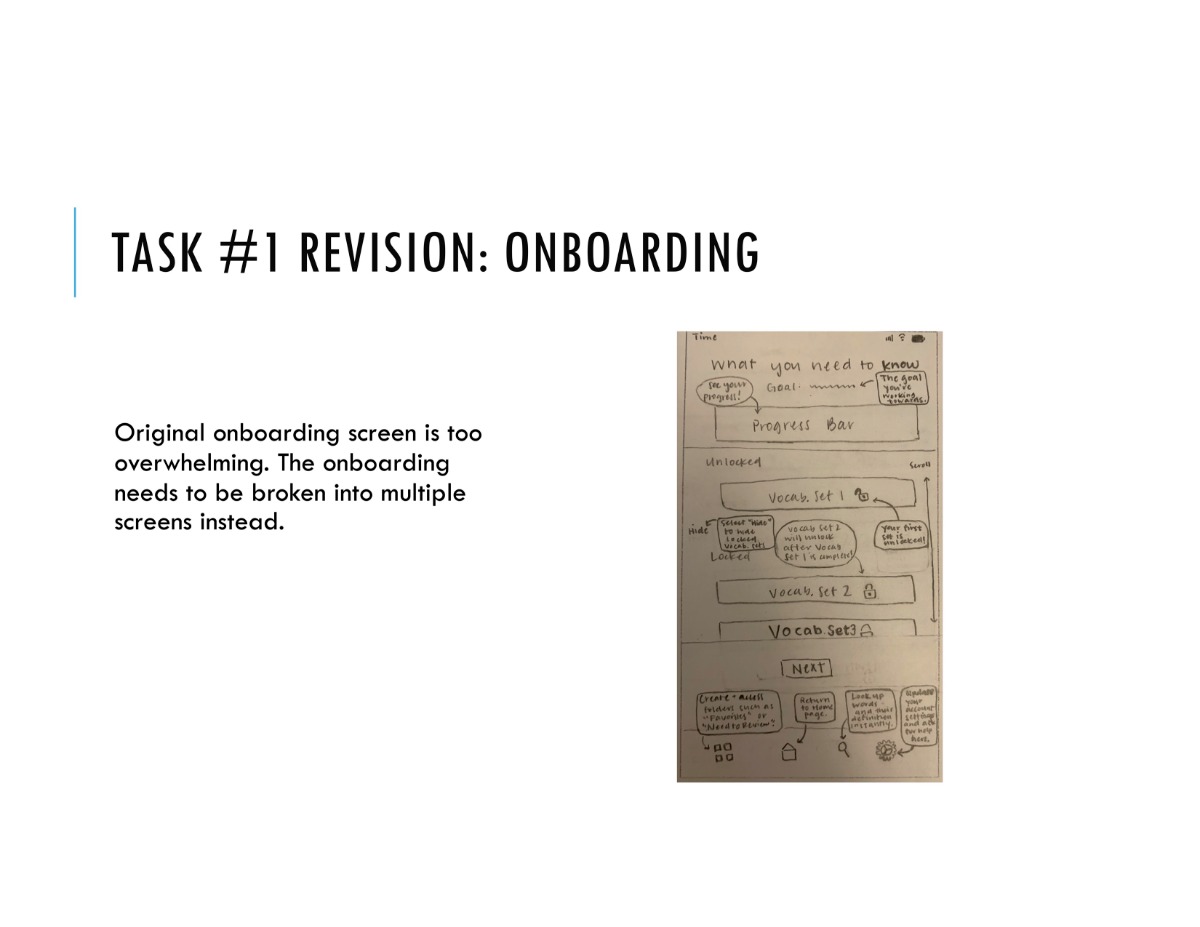 TASK #1 REVISION: ONBOARDING
Original onboarding screen is too
overwhelming. The onboarding
needs to be broken into multiple
screens instead.
Time
What you need to know
See your
progress!
Goal:
The goal
you're
working
towards.
Progress Bar
Unlocked
Scroll
Vocab. Set 1
Hide
Select "Hide"
to hide
Locked
Vocab. sets
Vocab Set 2
will unlock
after Vocab
Set 1 is complete!
Your first
set is
unlocked!
Locked
Vocab. Set 2
Vocab. Set 3
Next
Create + access
folders such as
"Favorites" or
"Need to Review".
Return
to Home
page.
Look up
words
and their
definition
instantly.
your
account
settings
and ask
for help
here.